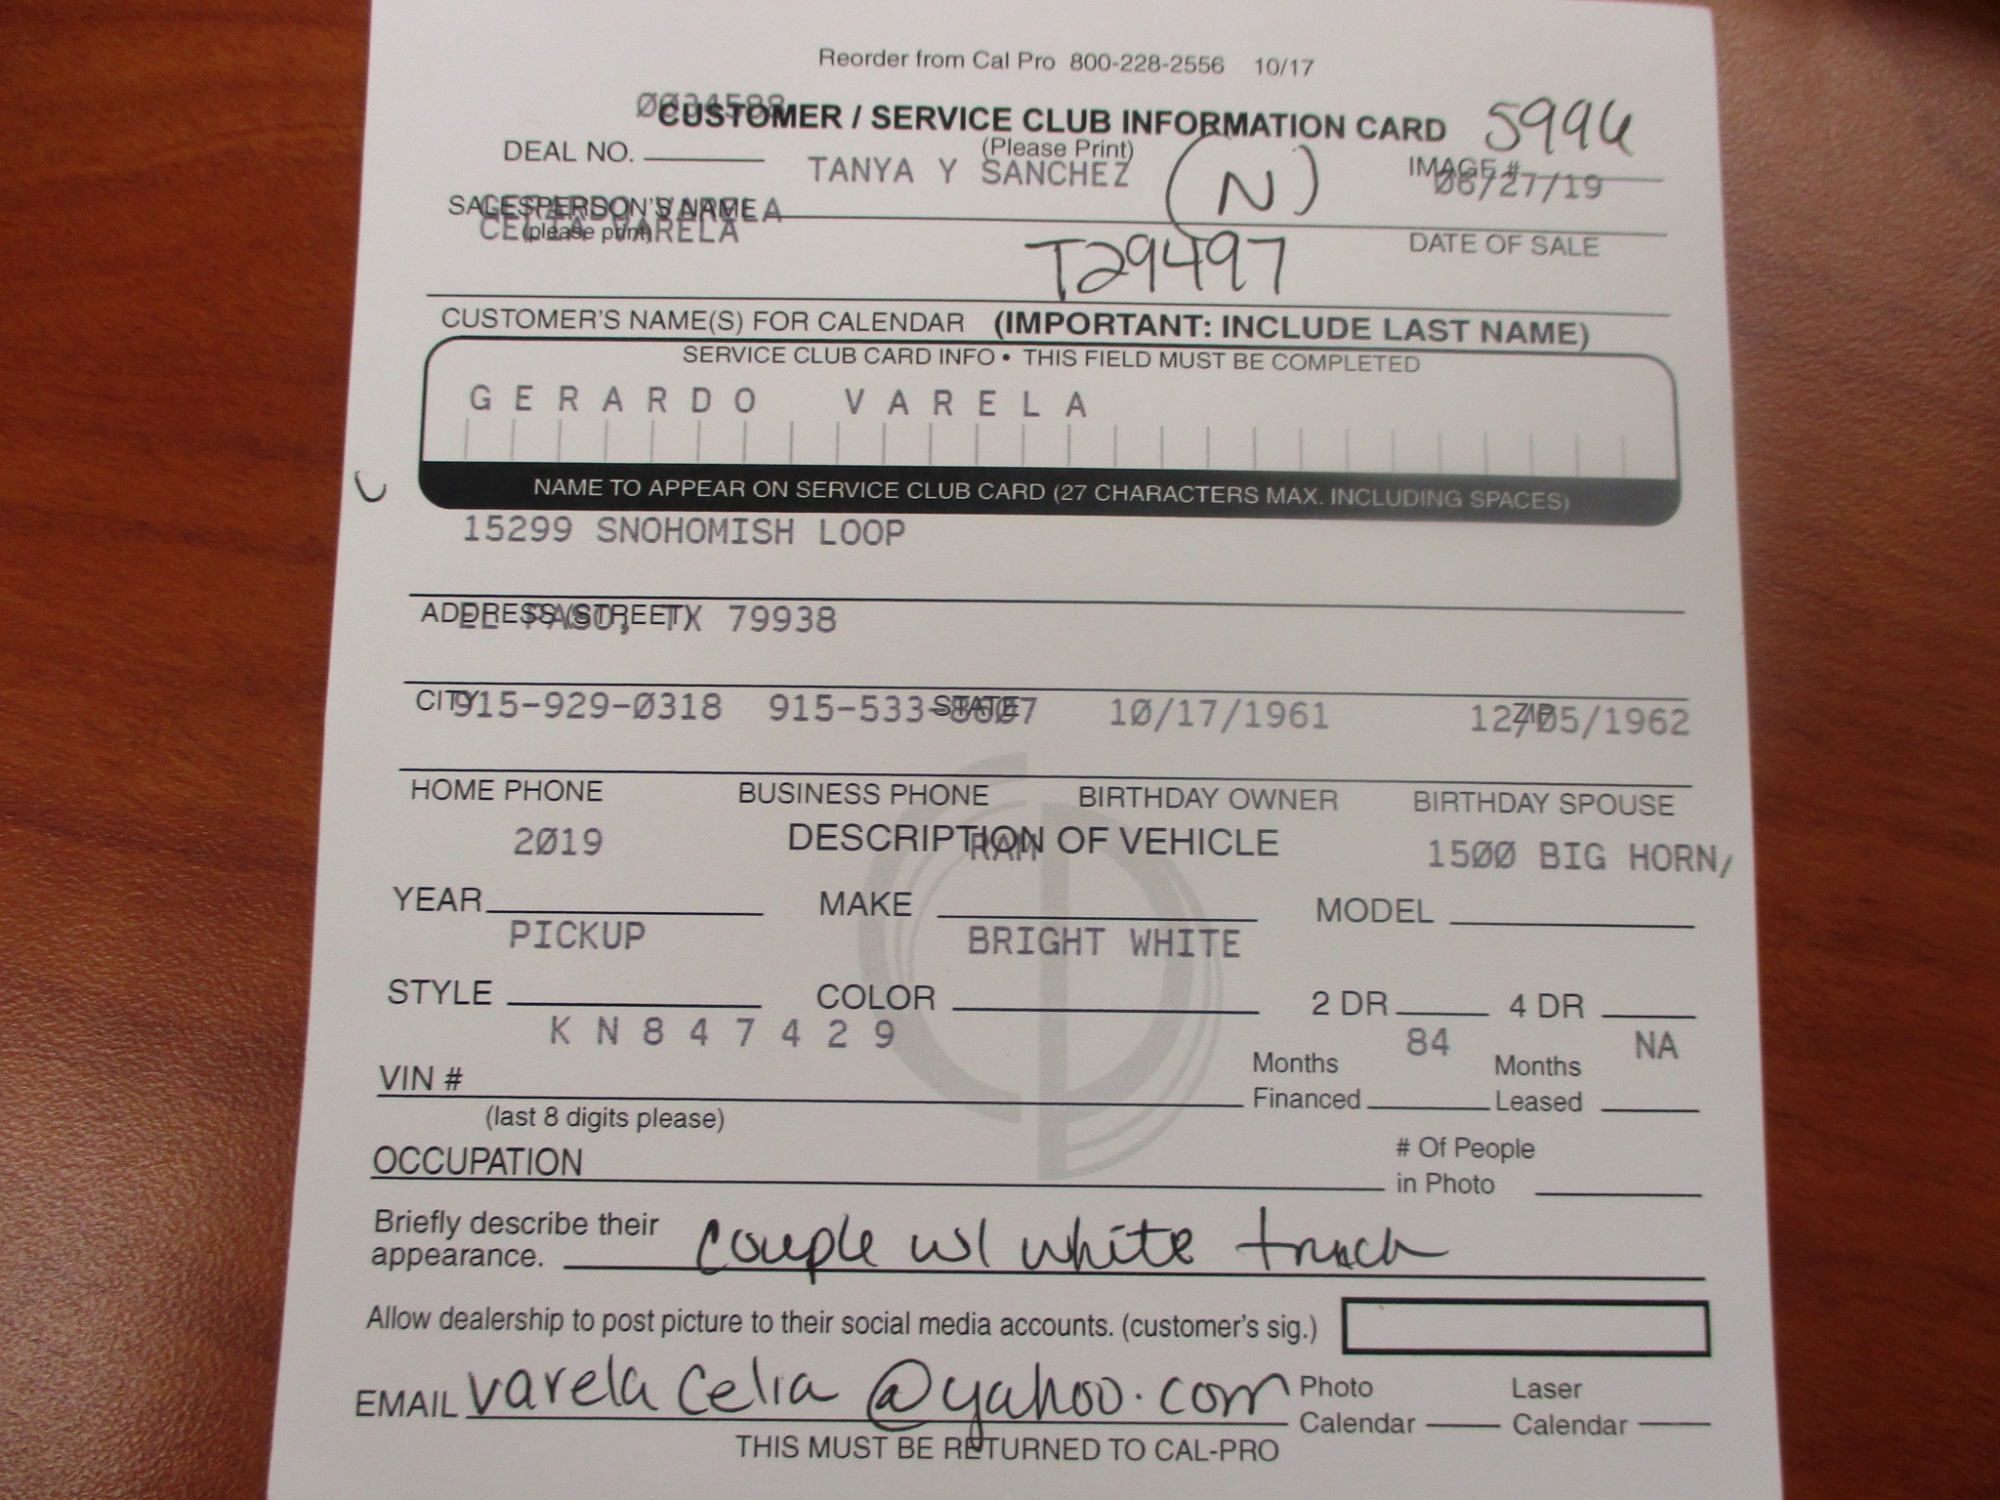 Reorder from Cal Pro 800-228-2556 10/17
CUSTOMER / SERVICE CLUB INFORMATION CARD
(Please Print)
DEAL NO.
TANYA Y SANCHEZ (N)
IMAGE #
06/27/19
SALESPERSON'S NAME
(please print)
CELIA VARELA
T29497
DATE OF SALE
CUSTOMER'S NAME(S) FOR CALENDAR (IMPORTANT: INCLUDE LAST NAME)
SERVICE CLUB CARD INFO • THIS FIELD MUST BE COMPLETED
GERARDO VARELA
NAME TO APPEAR ON SERVICE CLUB CARD (27 CHARACTERS MAX. INCLUDING SPACES)
15299 SNOHOMISH LOOP
ADDRESS (STREET)
EL PASO, TX 79938
CITY STATE ZIP
915-929-0318 10/17/1961 12/05/1962
HOME PHONE BUSINESS PHONE BIRTHDAY OWNER BIRTHDAY SPOUSE
DESCRIPTION OF VEHICLE
2019 RAM 1500 BIG HORN/
YEAR MAKE MODEL
PICKUP BRIGHT WHITE
STYLE COLOR 2 DR 4 DR
KN847429 84 NA
VIN # Months Financed Months Leased
(last 8 digits please)
OCCUPATION # Of People in Photo
Briefly describe their
appearance. couple w/ white truck
Allow dealership to post picture to their social media accounts. (customer's sig.)
EMAIL varelacelia@yahoo.com Photo Calendar Laser Calendar
THIS MUST BE RETURNED TO CAL-PRO